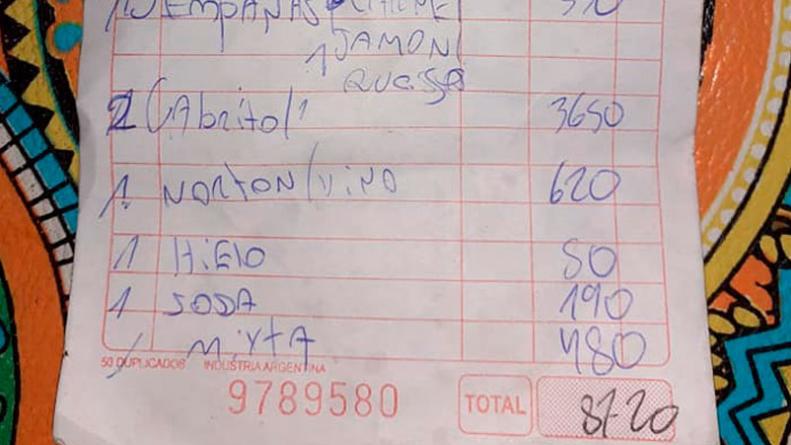 EMPANAS CARNE
1 JAMON
QUESSO
2 CAbrito/ 3650
1. NORTON/VINO 620
1 HiElo 50
1 SODA 190
MixtA 480
50 DUPLICADOS INDUSTRIA ARGENTINA
9789580 TOTAL 8720